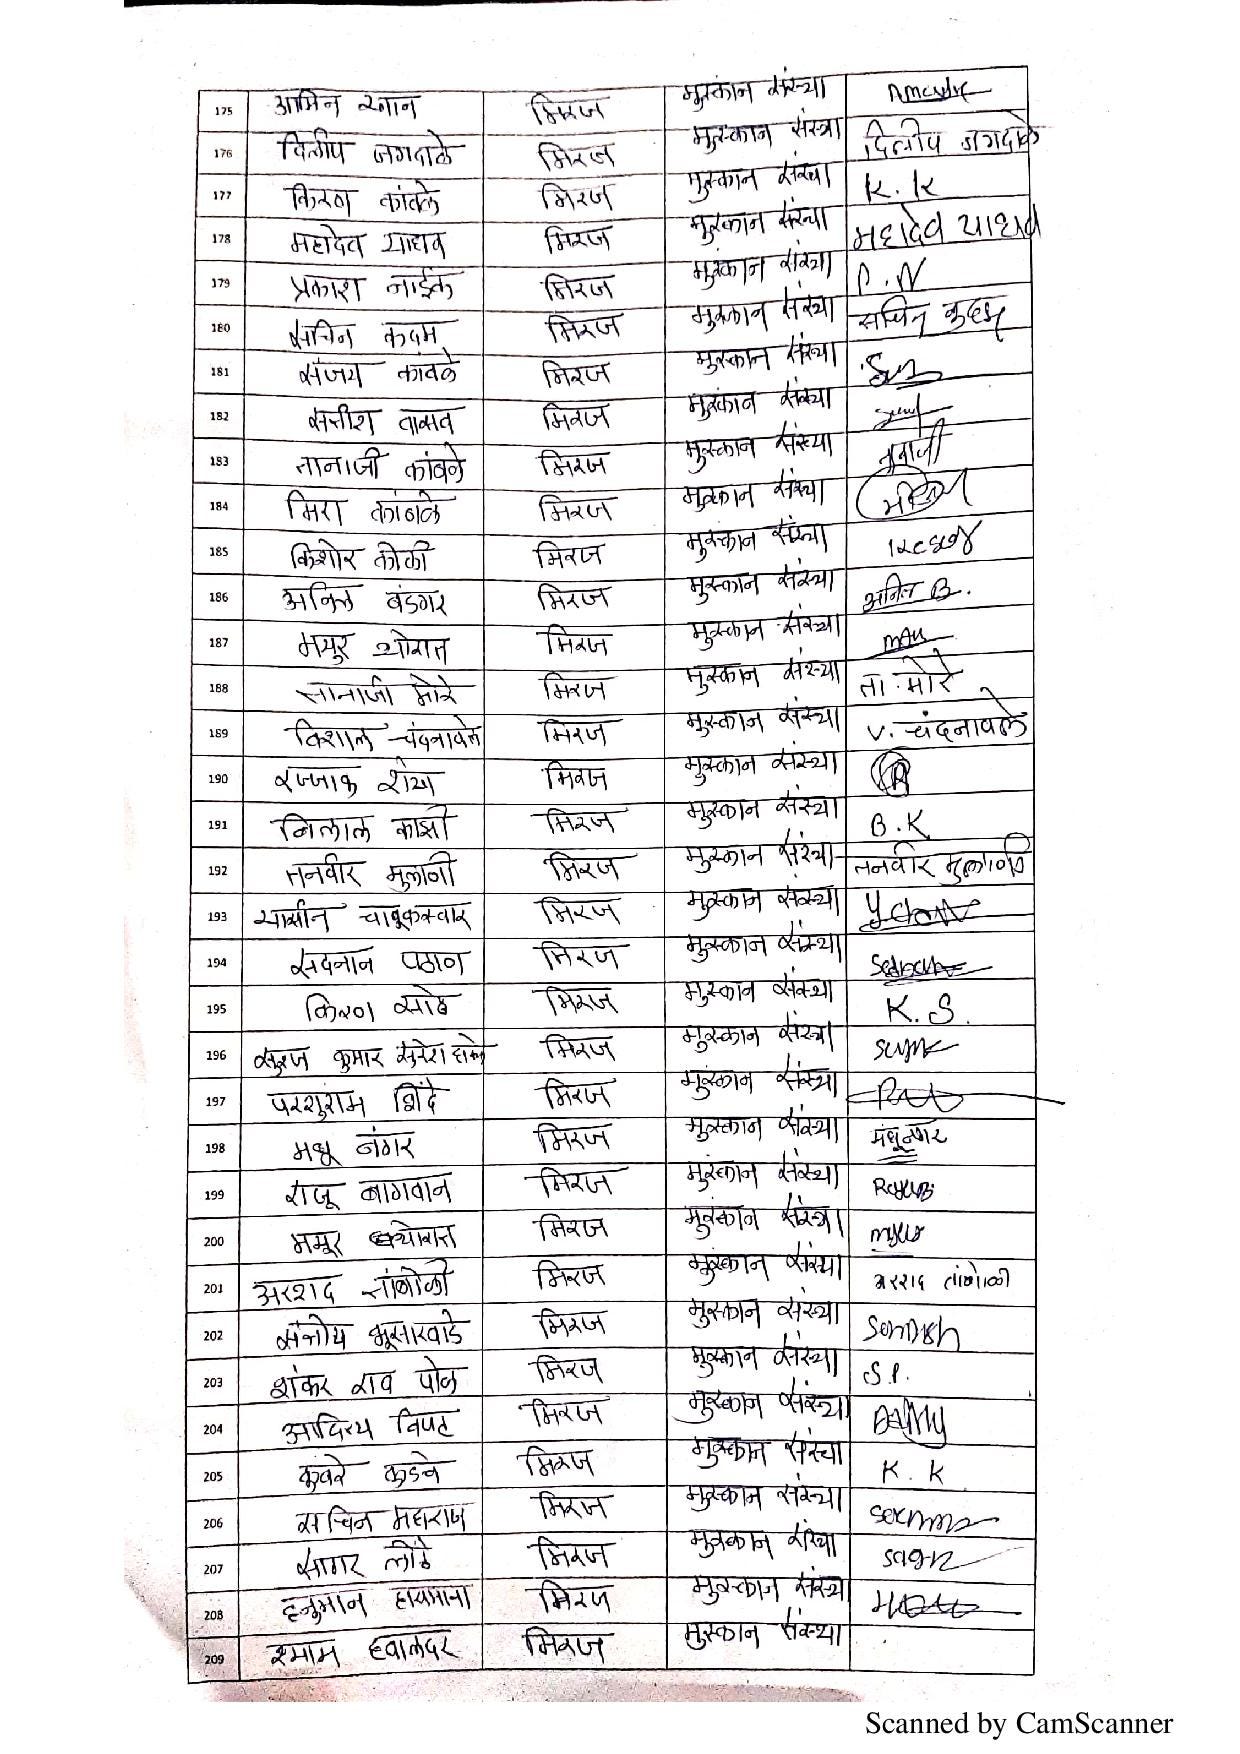 175 आमिन खान मिरज मुस्कान संस्था
176 दिलीप जगदाळे मिरज मुस्कान संस्था दिलीप जगदाळे
177 किरण कांबळे मिरज मुस्कान संस्था K. K
178 महादेव यादव मिरज मुस्कान संस्था महादेव यादव
179 प्रकाश नाईक मिरज मुस्कान संस्था P. N
180 सचिन कदम मिरज मुस्कान संस्था सचिन कदम
181 संजय कांबळे मिरज मुस्कान संस्था
182 सतीश मिरज मुस्कान संस्था
183 तानाजी कांबळे मिरज मुस्कान संस्था तानाजी
184 मिरा कांबळे मिरज मुस्कान संस्था
185 किशोर कोळी मिरज मुस्कान संस्था
186 अनिल बंडगर मिरज मुस्कान संस्था अनिल B.
187 मयुर थोरात मिरज मुस्कान संस्था
188 तानाजी मोरे मिरज मुस्कान संस्था ता. मोरे
189 विशाल चंदनावले मिरज मुस्कान संस्था V. चंदनावले
190 रज्जाक शेख मिरज मुस्कान संस्था R
191 बिलाल काझी मिरज मुस्कान संस्था B. K
192 तनवीर मुलाणी मिरज मुस्कान संस्था तनवीर मुलाणी
193 यासीन चाबुकस्वार मिरज मुस्कान संस्था
194 सदनान पठाण मिरज मुस्कान संस्था
195 किरण साठे मिरज मुस्कान संस्था K. S.
196 सुरज कुमार मिरज मुस्कान संस्था
197 परशुराम शिंदे मिरज मुस्कान संस्था
198 मधू नगर मिरज मुस्कान संस्था मधूनगर
199 राजू बागवान मिरज मुस्कान संस्था
200 मयूर थोरात मिरज मुस्कान संस्था
201 अरशद तांबोळी मिरज मुस्कान संस्था अरशद तांबोळी
202 संतोष भूसारवाडे मिरज मुस्कान संस्था
203 शंकर राव पोळ मिरज मुस्कान संस्था S P.
204 आदित्य मिरज मुस्कान संस्था
205 मिरज मुस्कान संस्था K. K
206 सचिन महाराज मिरज मुस्कान संस्था
207 सागर लोंढे मिरज मुस्कान संस्था
208 हनुमान मिरज मुस्कान संस्था
209 श्याम हवालदर मिरज मुस्कान संस्था
Scanned by CamScanner